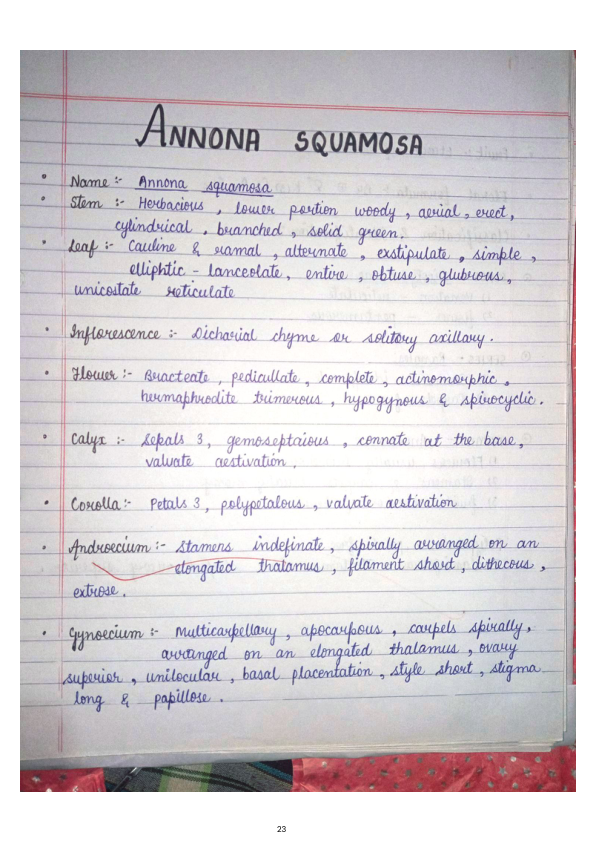 ANNONA SQUAMOSA
• Name :- Annona squamosa
• Stem :- Herbacious , lower portion woody , aerial , erect ,
cylindrical , branched , solid green.
• Leaf :- Cauline & ramal , alternate , exstipulate , simple ,
elliptic - lanceolate , entire , obtuse , glubrous ,
unicostate reticulate
• Inflorescence :- Dicharial chyme or solitory axillary .
• Flower :- Bracteate , pedicullate , complete , actinomorphic ,
hermaphrodite trimerous , hypogynous & spirocyclic .
• Calyx :- Sepals 3 , gemoseptaious , connate at the base ,
valvate aestivation .
• Corolla :- Petals 3 , polypetalous , valvate aestivation
• Androecium :- Stamens indefinate , spirally arranged on an
elongated thalamus , filament short , dithecous ,
extrose .
• Gynoecium :- Multicarpellary , apocarpous , carpels spirally ,
arranged on an elongated thalamus , ovary
superior , unilocular , basal placentation , style short , stigma
long & papillose .
23